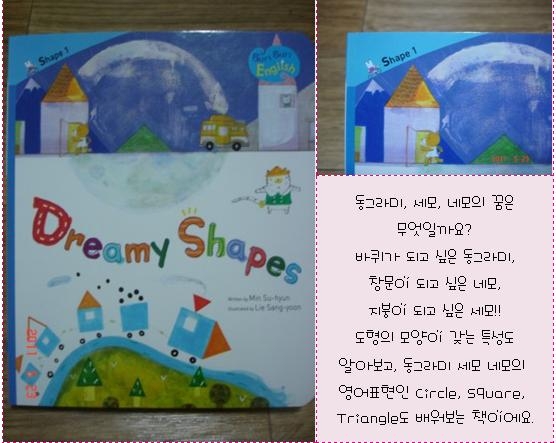 Shape 1
Buri Buri
English
Dreamy Shapes
Written by Min Su-hyun
Illustrated by Lie Sang-yoon
2011 5 23
Shape 1
2011 5 23
동그라미, 세모, 네모의 꿈은
무엇일까요?
바퀴가 되고 싶은 동그라미,
창문이 되고 싶은 네모,
지붕이 되고 싶은 세모!!
도형의 모양이 갖는 특성도
알아보고, 동그라미 세모 네모의
영어표현인 Circle, Square,
Triangle도 배워보는 책이에요.